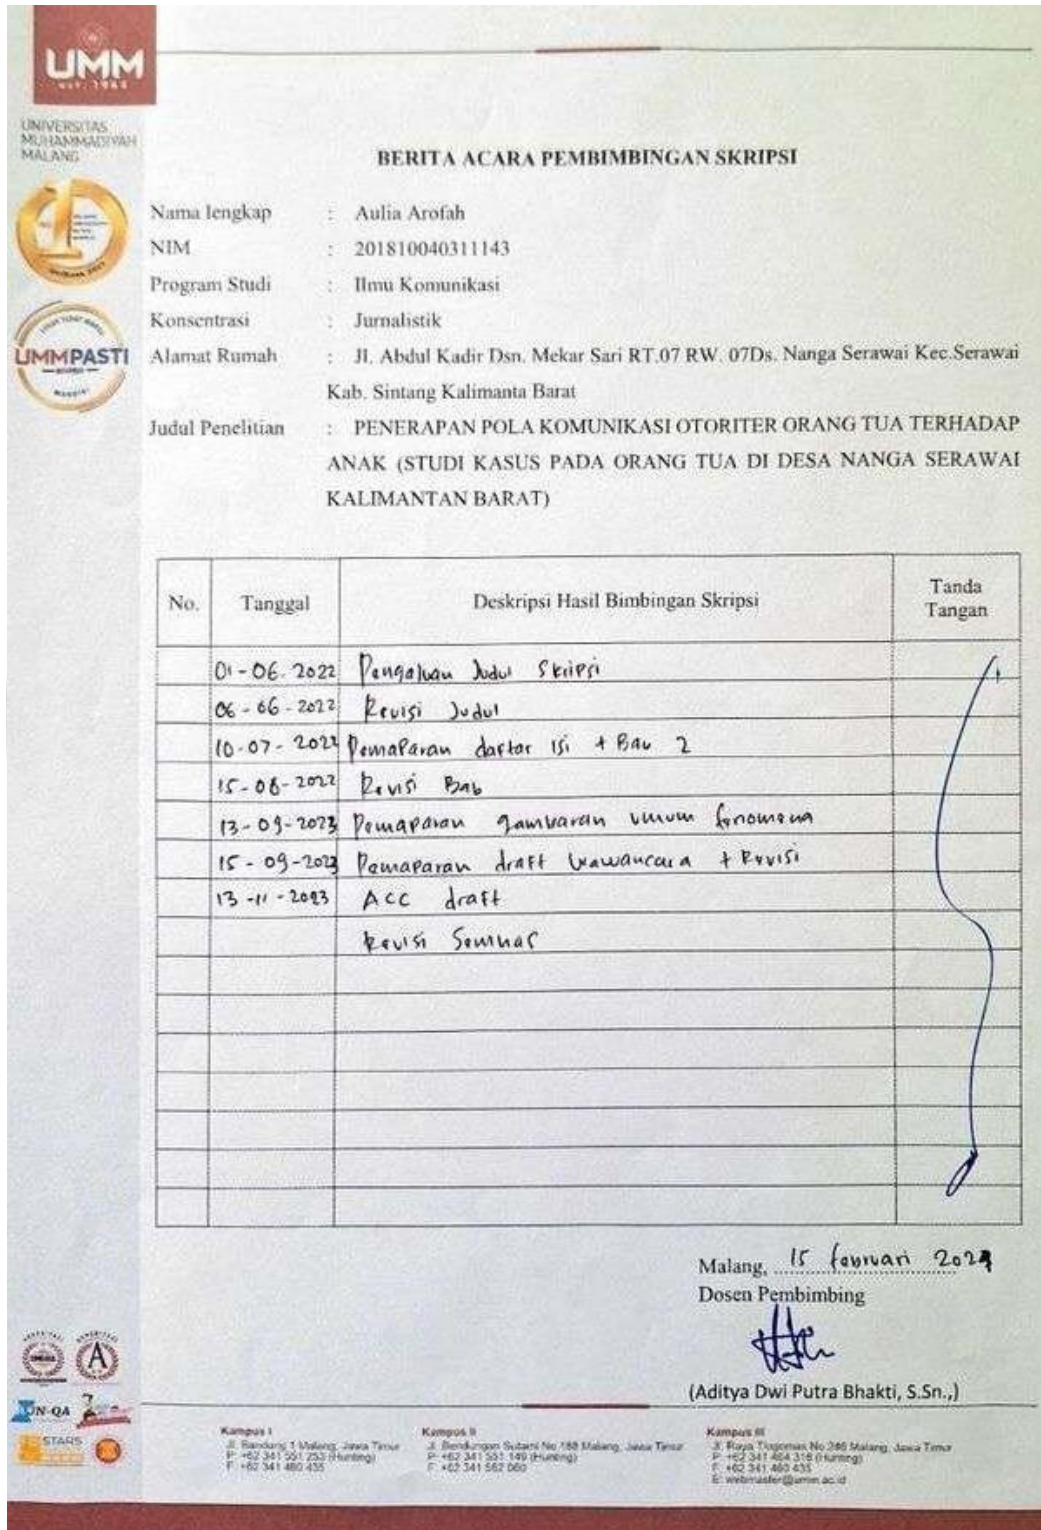 UMM
EST. 1964
UNIVERSITAS
MUHAMMADIYAH
MALANG
UMMPASTI
BERITA ACARA PEMBIMBINGAN SKRIPSI
Nama lengkap : Aulia Arofah
NIM : 201810040311143
Program Studi : Ilmu Komunikasi
Konsentrasi : Jurnalistik
Alamat Rumah : Jl. Abdul Kadir Dsn. Mekar Sari RT.07 RW. 07Ds. Nanga Serawai Kec.Serawai
Kab. Sintang Kalimanta Barat
Judul Penelitian : PENERAPAN POLA KOMUNIKASI OTORITER ORANG TUA TERHADAP
ANAK (STUDI KASUS PADA ORANG TUA DI DESA NANGA SERAWAI
KALIMANTAN BARAT)
No. Tanggal Deskripsi Hasil Bimbingan Skripsi Tanda Tangan
01-06-2022 Pengajuan Judul Skripsi
06-06-2022 Revisi Judul
10-07-2022 Pemaparan daftar isi + Bab 2
15-08-2022 Revisi Bab
13-09-2023 Pemaparan gambaran umum fenomena
15-09-2023 Pemaparan draft wawancara + Revisi
13-11-2023 ACC draft
Revisi Seminar
Malang, 15 februari 2024
Dosen Pembimbing
(Aditya Dwi Putra Bhakti, S.Sn.,)
UN-QA
STARS
Kampus I Kampus II Kampus III
Jl. Bandung 1 Malang, Jawa Timur Jl. Bendungan Sutami No 188 Malang, Jawa Timur Jl. Raya Tlogomas No 246 Malang, Jawa Timur
P: +62 341 551 253 (Hunting) P: +62 341 551 149 (Hunting) P: +62 341 464 318 (Hunting)
F: +62 341 460 435 F: +62 341 582 060 F: +62 341 460 435
E: webmaster@umm.ac.id